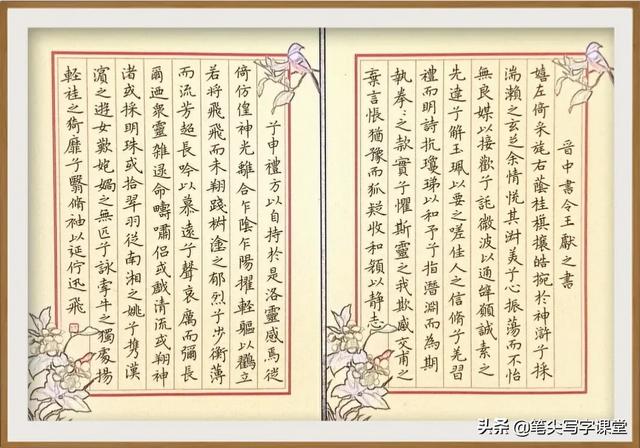 晉中書令王獻之書
嬉左倚采旄右蔭桂旗攘皓捥於神滸兮採
湍瀨之玄芝余情悅其淑美兮心振蕩而不怡
無良媒以接歡兮託微波以通辭願誠素之
先達兮解玉珮以要之嗟佳人之信脩兮羌習
禮而明詩抗瓊珶以和予兮指潛淵而為期
執拳〻之款實兮懼斯靈之我欺感交甫之
棄言悵猶豫而狐疑收和顏以靜志
兮申禮方以自持於是洛靈感焉徙
倚仿偟神光離合乍陰乍陽擢輕軀以鶴立
若將飛飛而未翔踐椒塗之郁烈兮步衡薄
而流芳超長吟以慕遠兮聲哀厲而彌長
爾迺衆靈雜遝命疇嘯侶或戲清流或翔神
渚或採明珠或拾翠羽從南湘之姚兮攜漢
濱之遊女歎匏媧之無匹兮詠牽牛之獨處揚
輕袿之猗靡兮翳脩袖以延佇迅飛
头条 @笔头写字课堂